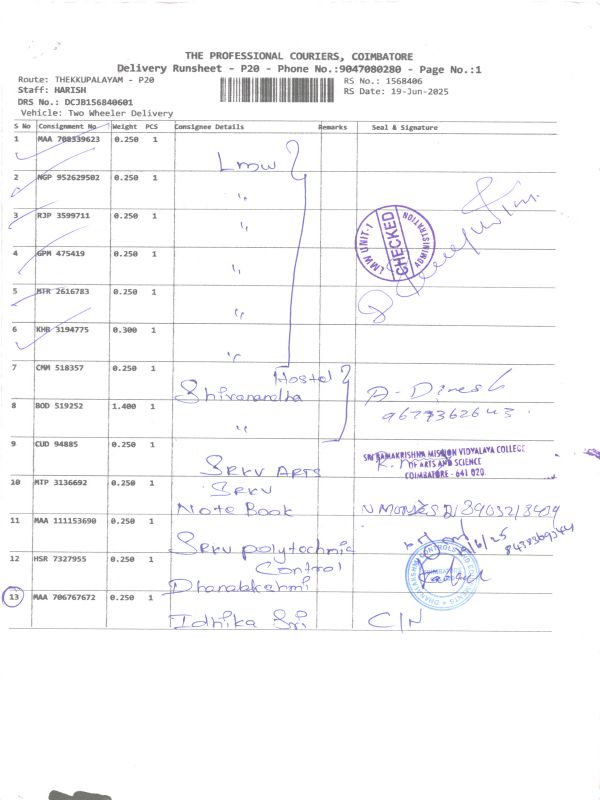 THE PROFESSIONAL COURIERS, COIMBATORE
Delivery Runsheet - P20 - Phone No.:9047080280 - Page No.:1
Route: THEKKUPALAYAM - P20
RS No.: 1568406
Staff: HARISH
RS Date: 19-Jun-2025
DRS No.: DCJB156840601
Vehicle: Two Wheeler Delivery
S No Consignment No Weight PCS Consignee Details Remarks Seal & Signature
1 MAA 708339623 0.250 1
Lmw
2 NGP 952629502 0.250 1
"
3 RJP 3599711 0.250 1
"
LMW UNIT-1 CHECKED
4 GPM 475419 0.250 1
"
5 MTR 2616783 0.250 1
"
6 KHB 3194775 0.300 1
"
7 CMM 518357 0.250 1
Hostel
Shivanandha
A- Dinesh
8 BOD 519252 1.400 1
"
9 CUD 94885 0.250 1
SRKV ARTS
SRI RAMAKRISHNA MISSION VIDYALAYA COLLEGE
OF ARTS AND SCIENCE
COIMBATORE - 641 020.
10 MTP 3136692 0.250 1
SRKV
Note Book
11 MAA 111153690 0.250 1
SRKV polytechnic
12 HSR 7327955 0.250 1
Control
Dhanalakshmi
13 MAA 706767672 0.250 1
Idhika Sri
C/N